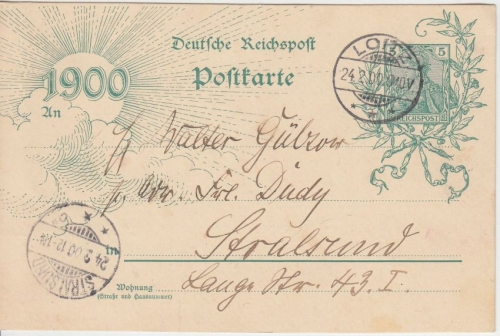 Deutsche Reichspost
Postkarte
1900
5
LOITZ
24.2.00.
REICHSPOST
An
Walter Gülzow
Frl. Düdy
in
Stralsund
Wohnung
(Straße und Hausnummer)
Lange Str. 43. I.
STRALSUND
24.2.00.